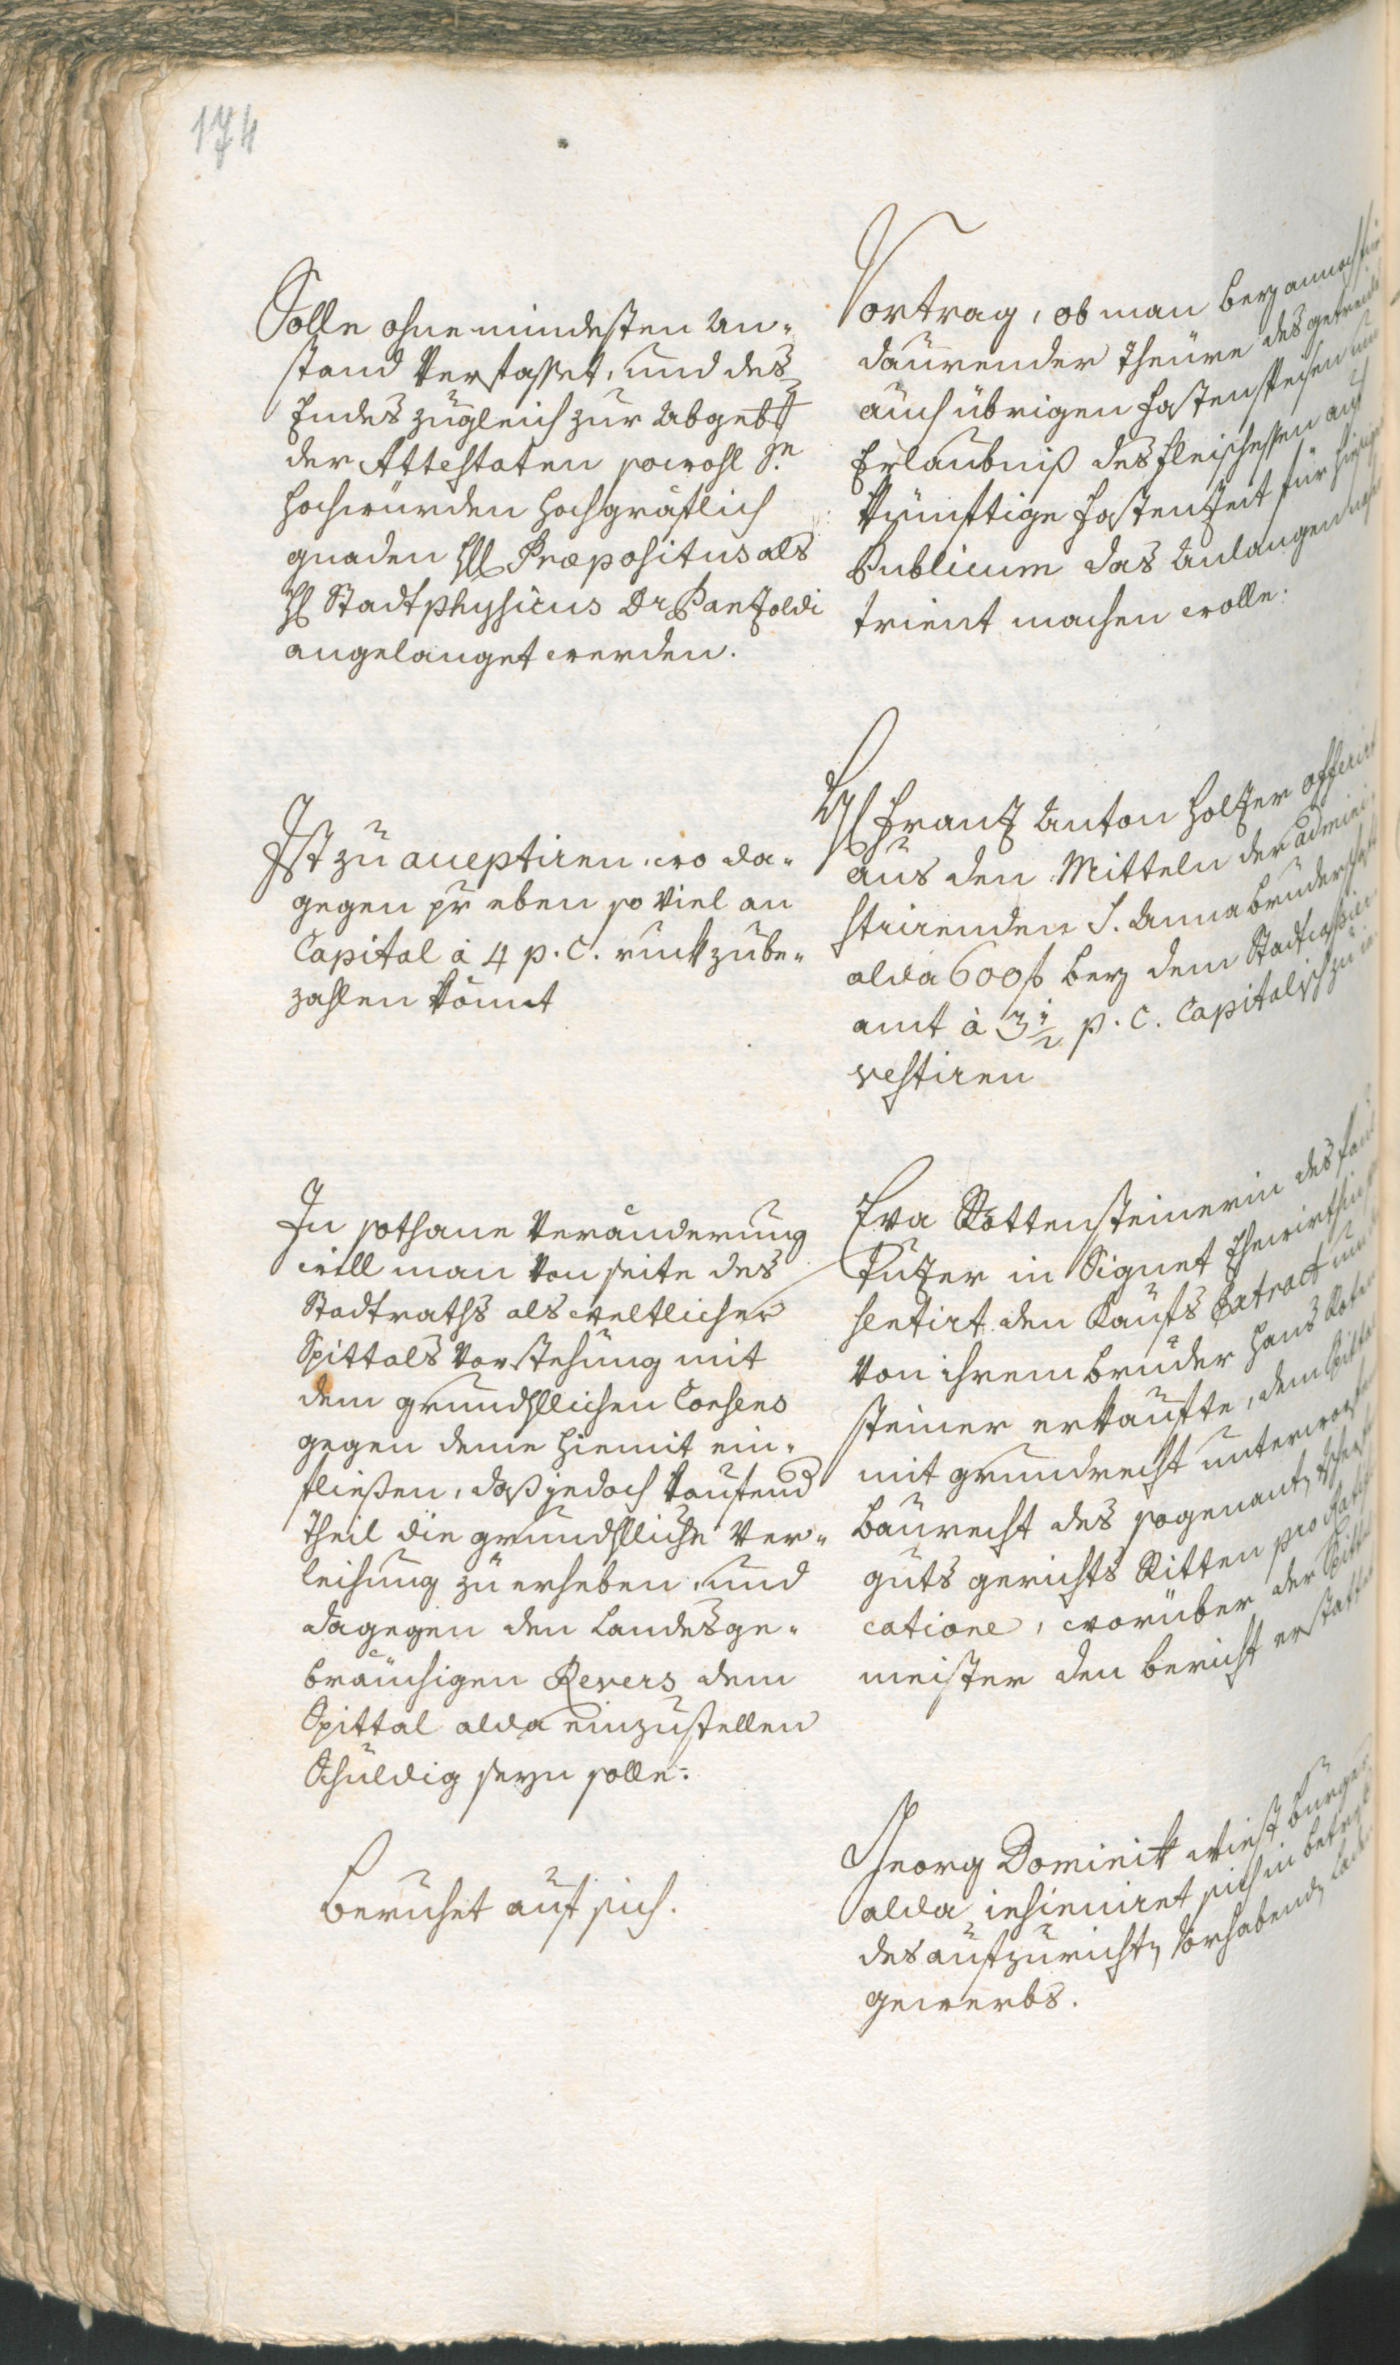 174
Solle ohne mindesten An-
stand Verfasset, und des
Endes zugleich zur Abgeb
der Attestaten sowohl Se
Hochwürden hochgräflich
gnaden HH Præpositus als
H Stadtphysicus Dr Panzoldi
angelanget werden.
Vortrag, ob man bey annoch
daurender Theure des getreid
auch übrigen fastenspeisen um
Erlaubniß des fleischessen auf
Künftige fastenzeit für hiesige
Publicum das Anlangen nach
trient machen wolle.
Ist zu acceptiren, wo da-
gegen pr eben so Viel an
Capital à 4 p. C. ruckzube-
zahlen kommt
H Frantz Anton Holzer offerirt
aus den Mitteln der admini-
strirenden S. Anna bruderschaft
alda 600 f bey dem Stadtcassier
amt à 3 1/2 p. C. Capitalisch zu in-
vestiren
In sothane Veränderung
will man Von seite des
Stadtraths als weltlicher
Spittals Vorstehung mit
dem grundhllichen Consens
gegen deme hiemit ein-
fließen, daß jedoch kaufend
Theil die grundhlliche Ver-
leihung zu erheben, und
dagegen den Landesge-
bräuchigen Revers dem
Spittal alda einzustellen
Schuldig seyn solle.
Eva Rottensteinerin des
Puzer in Signat Ehewirthin
sentirt den Kaufs Extract um
Von ihrem bruder Hans Roten
steiner erkaufte, dem Spittal
mit grundrecht unterworfen
baurecht des sogenant
guts gerichts Ritten pro Ratifi
catione, worüber der Spittl
meister den bericht erstattet
Beruhet auf sich.
Georg Dominik Wiest burger
alda insinuiret sich in betref
des aufzuricht Vorhabend
gewerbs.